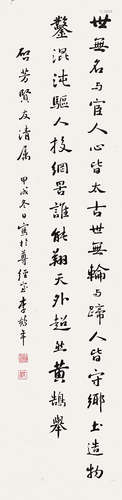 世無名與宦人心皆太古世無輪與蹄人皆守鄉土造物
鑿混沌驅人投網罟誰能翔天外超然黃鵠舉
石芳賢友清屬 甲戌冬日寫於尊經室李鶴年